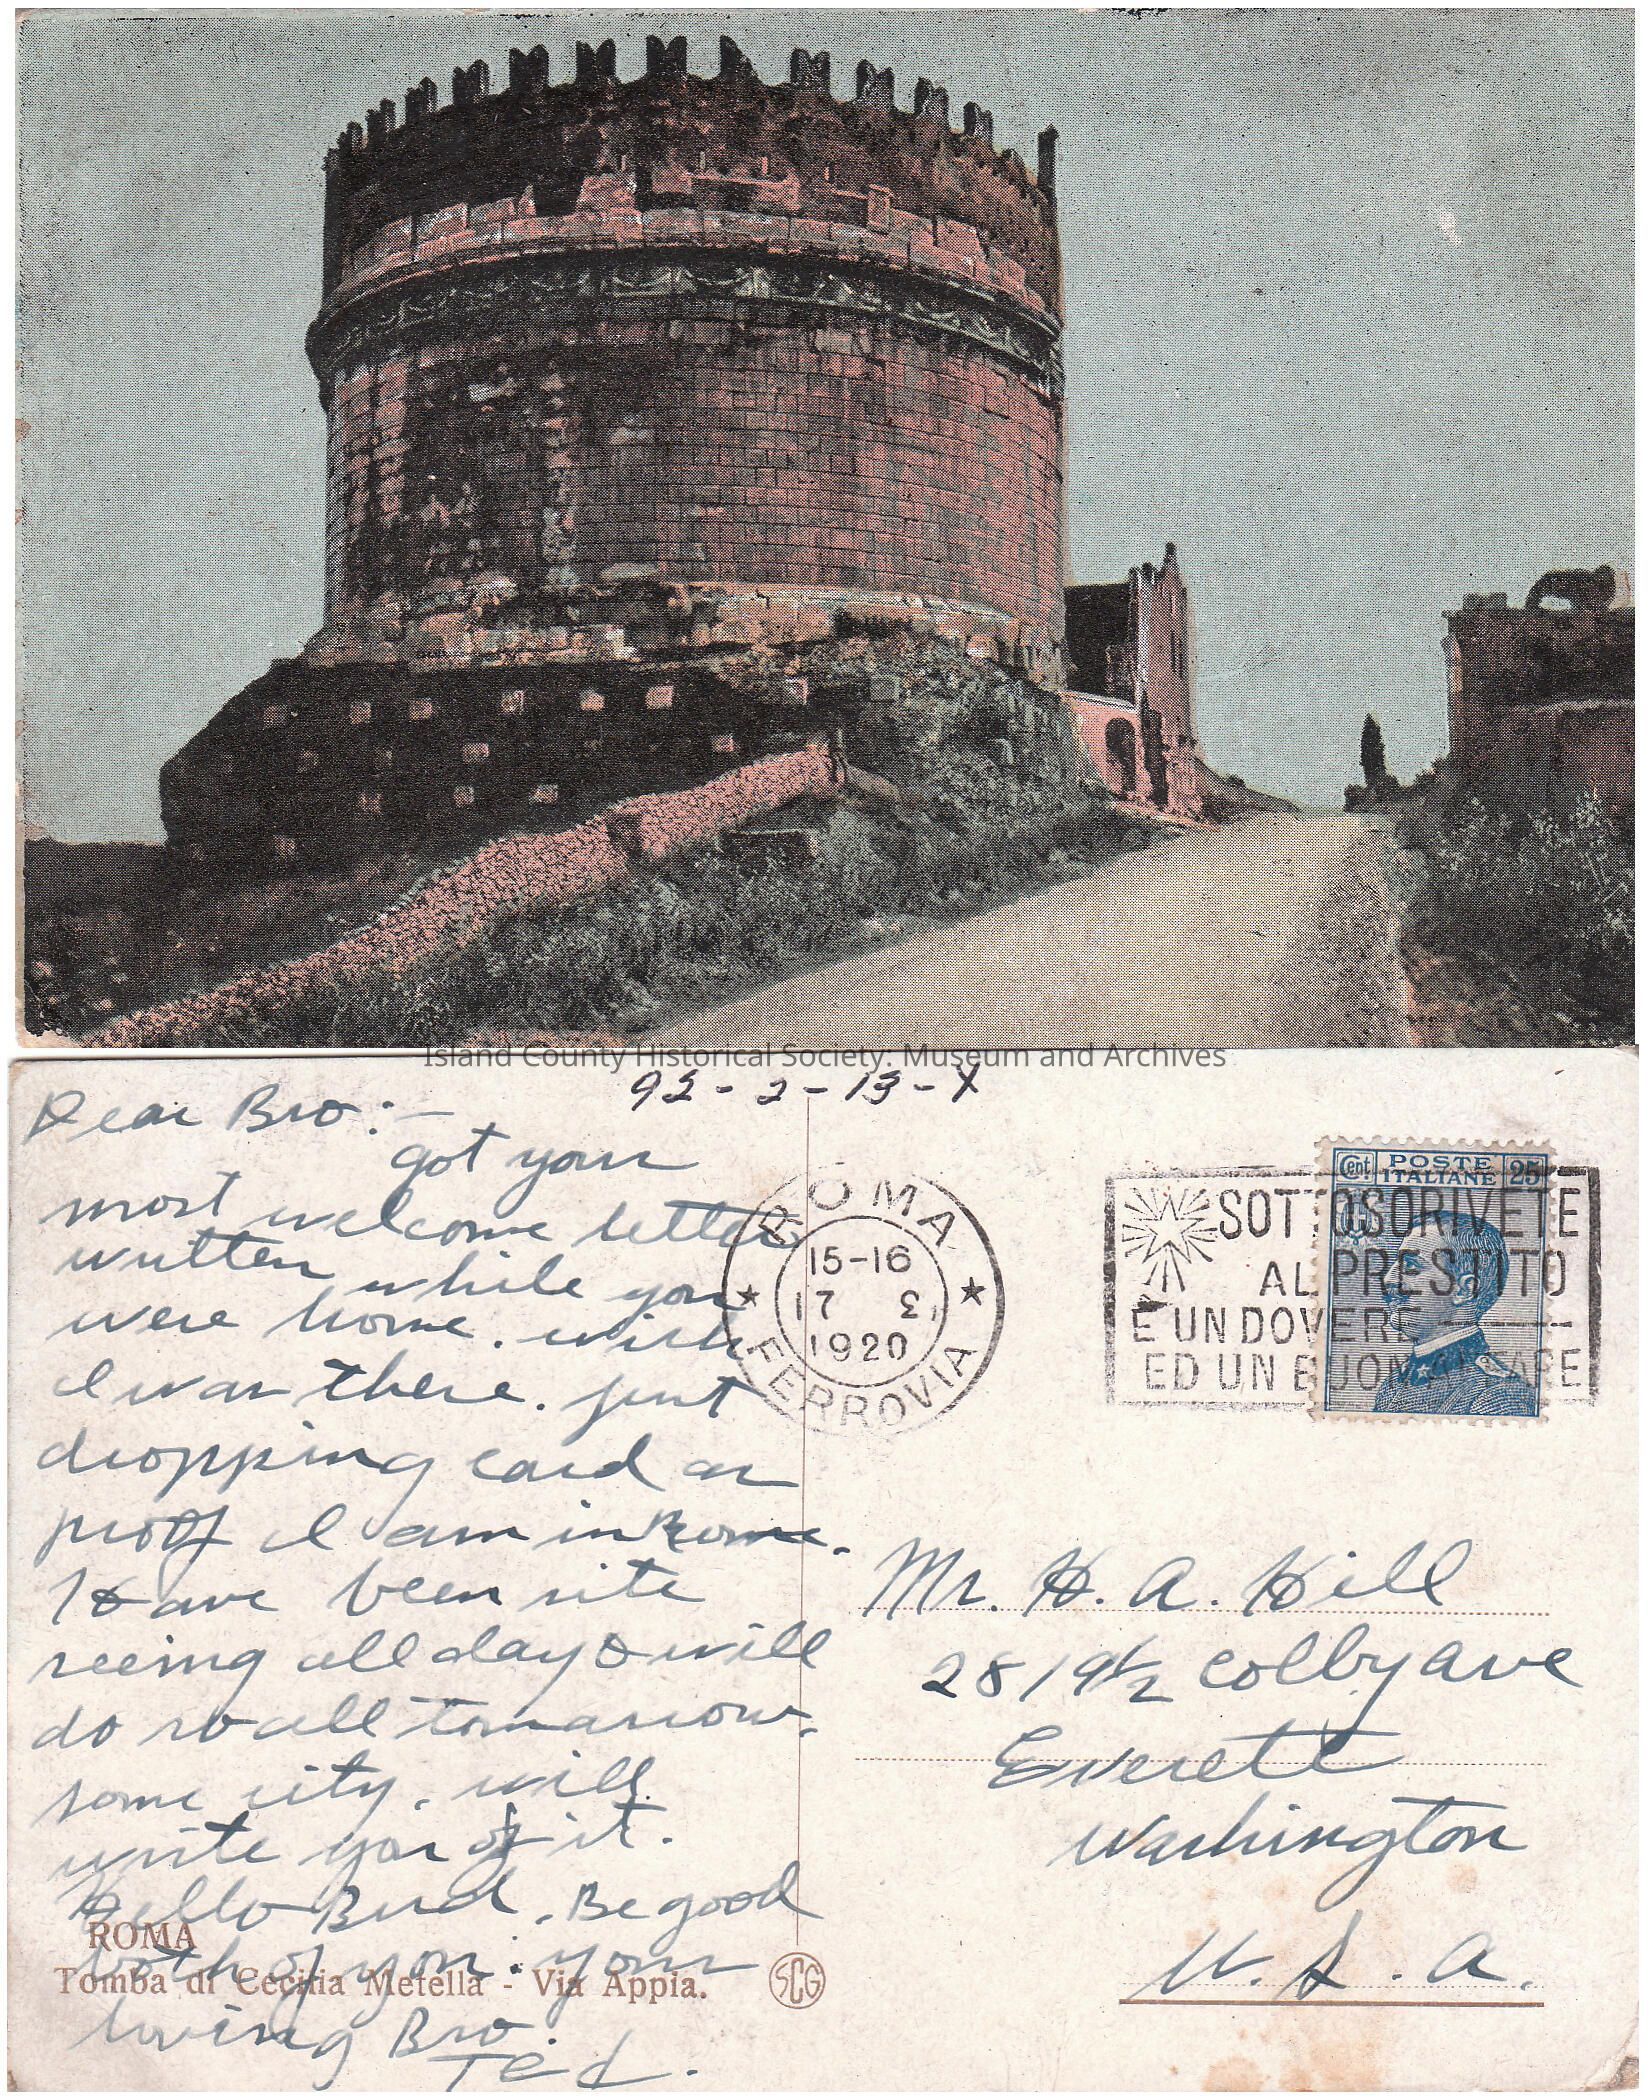 Island County Historical Society: Museum and Archives
92-2-13-X
Dear Bro:-
got your
most welcome letter
written while you
were home. wish
I was there. just
dropping card as
proof I am in Rome.
Have been site
seeing all day & will
do so all tomarrow.
some city. will
write you of it.
Hello Bud. Be good
both of you. your
loving Bro.
Ted.
ROMA
Tomba di Cecilia Metella - Via Appia.
SCG
ROMA
15-16
17 3
1920
FERROVIA
Cent. POSTE ITALIANE 25
SOTTOSCRIVETE
AL PRESTITO
È UN DOVERE
ED UN BUON AFFARE
Mr. H. A. Hill
2819½ Colby Ave
Everett
Washington
U. S. A.